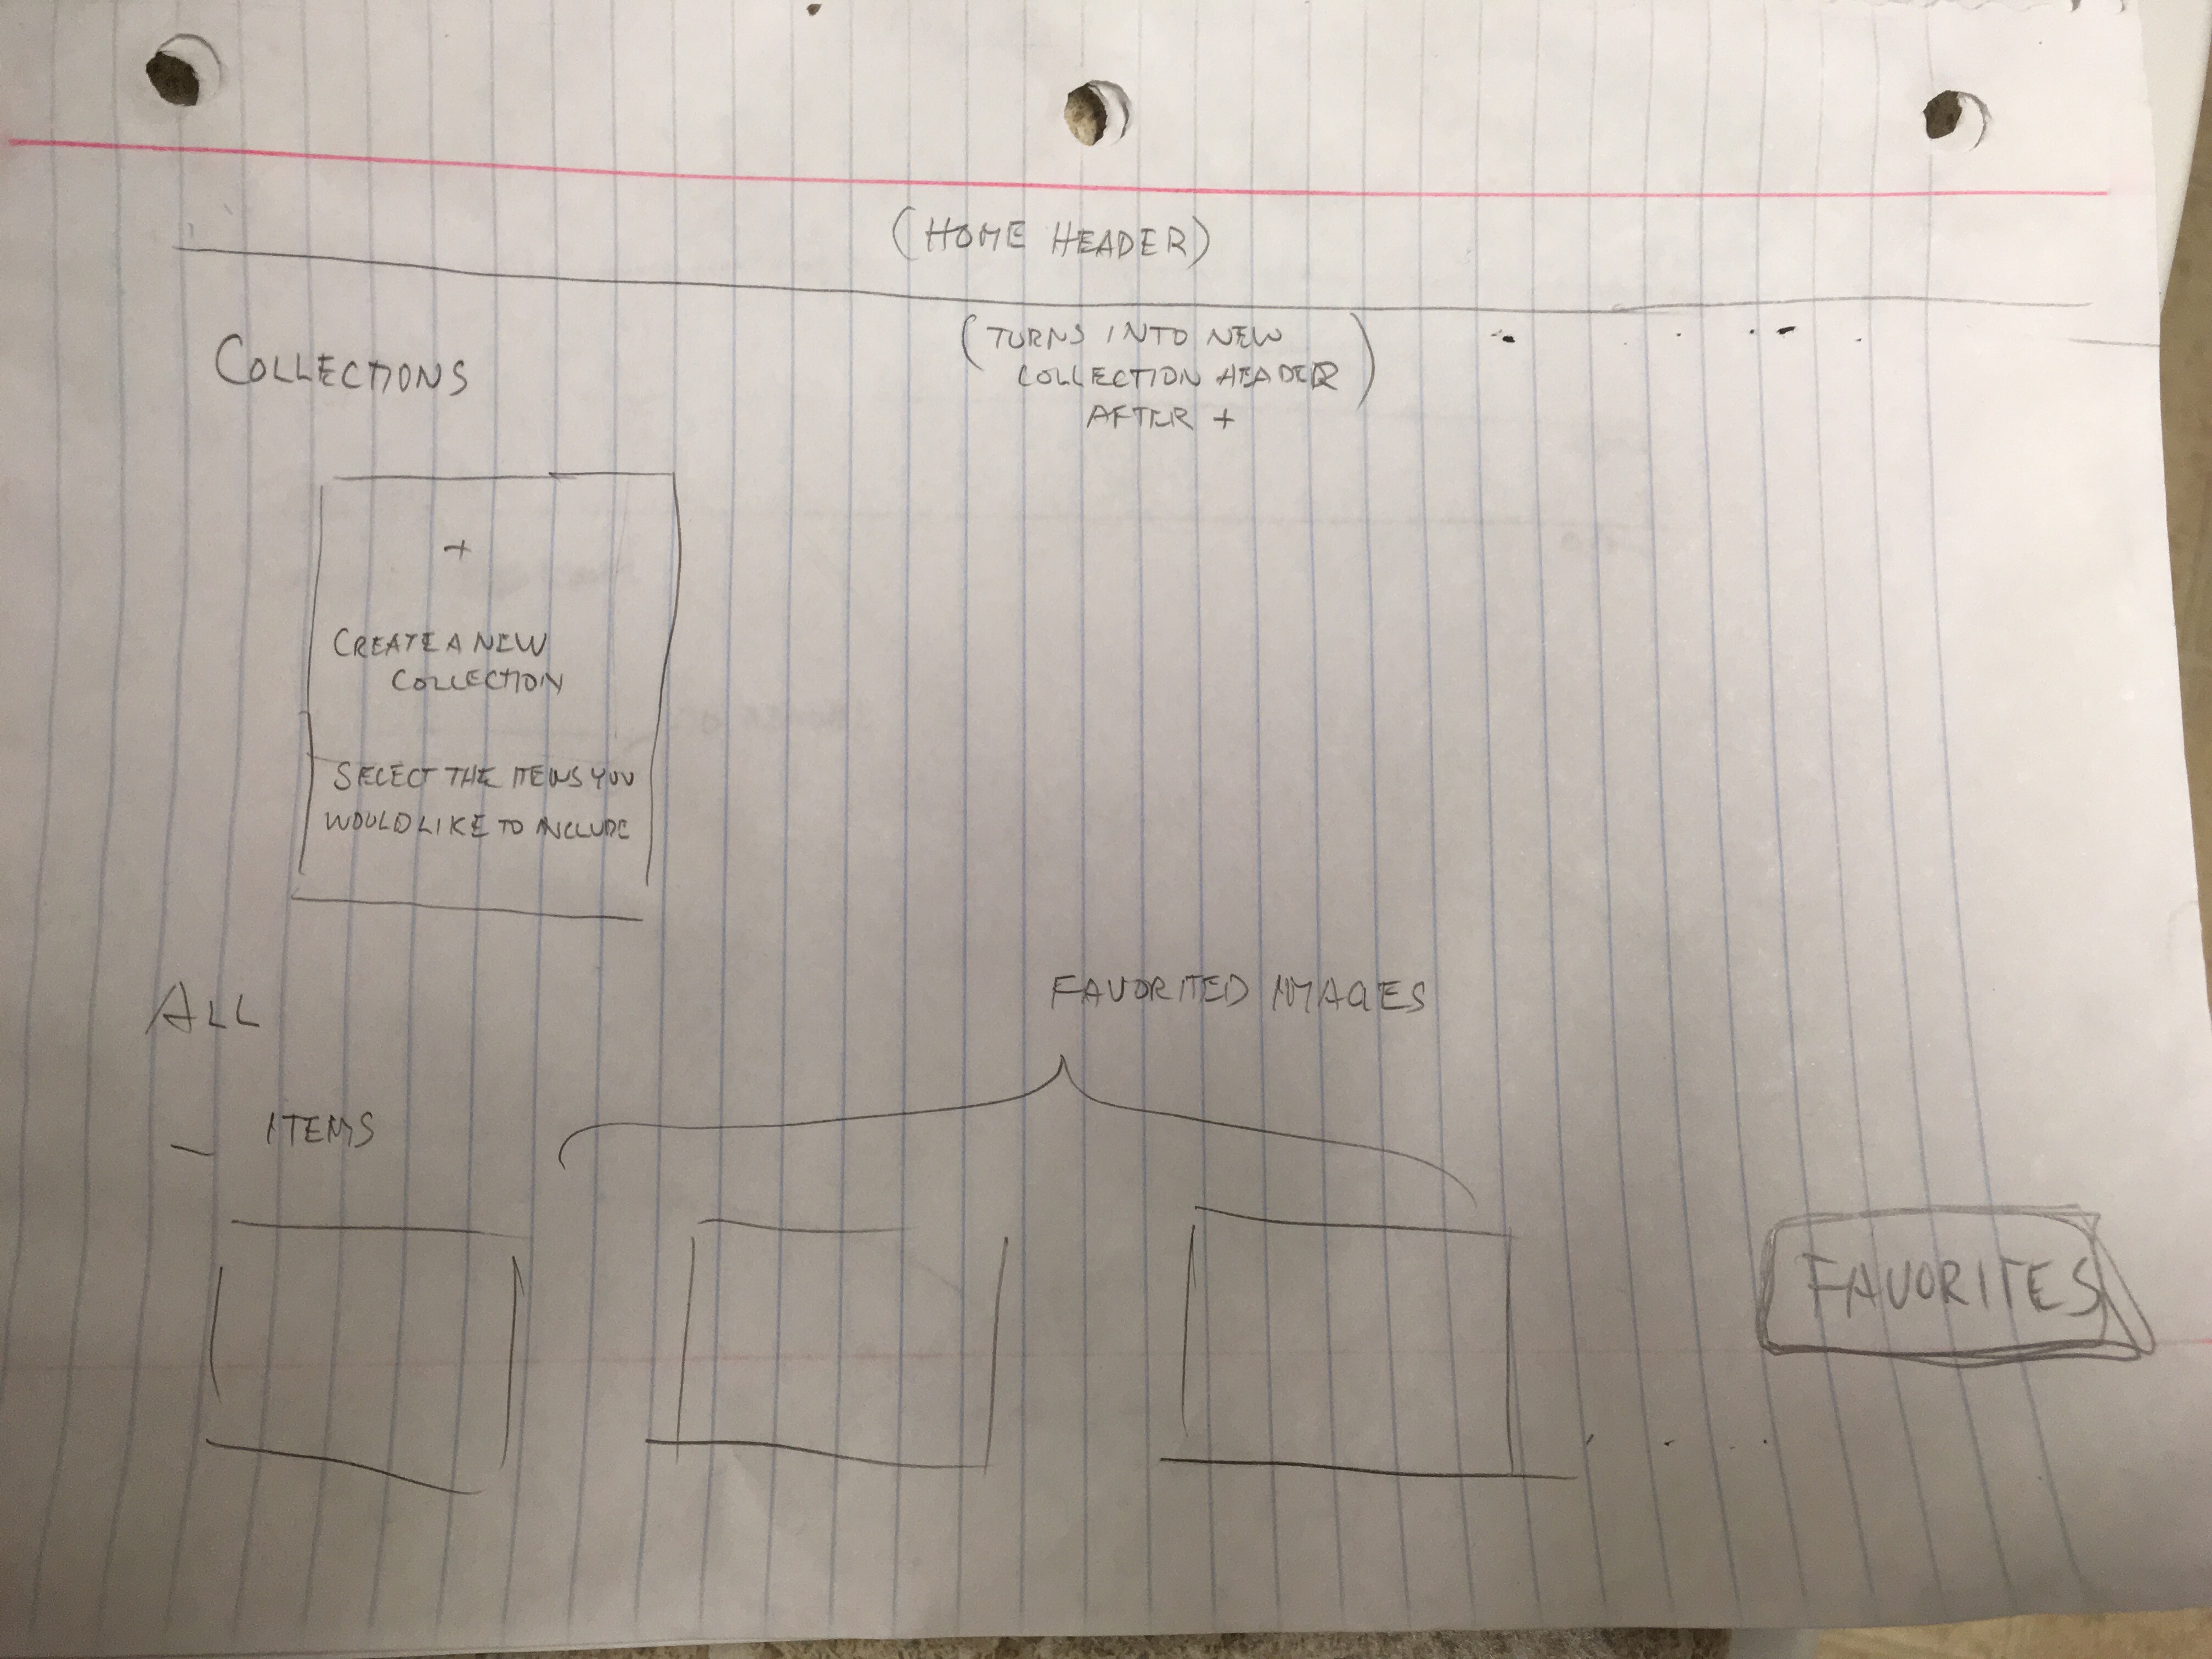 (HOME HEADER)
COLLECTIONS
(TURNS INTO NEW
COLLECTION HEADER)
AFTER +
+
CREATE A NEW
COLLECTION
SELECT THE ITEMS YOU
WOULD LIKE TO INCLUDE
ALL
FAVORITED IMAGES
_ ITEMS
FAVORITES